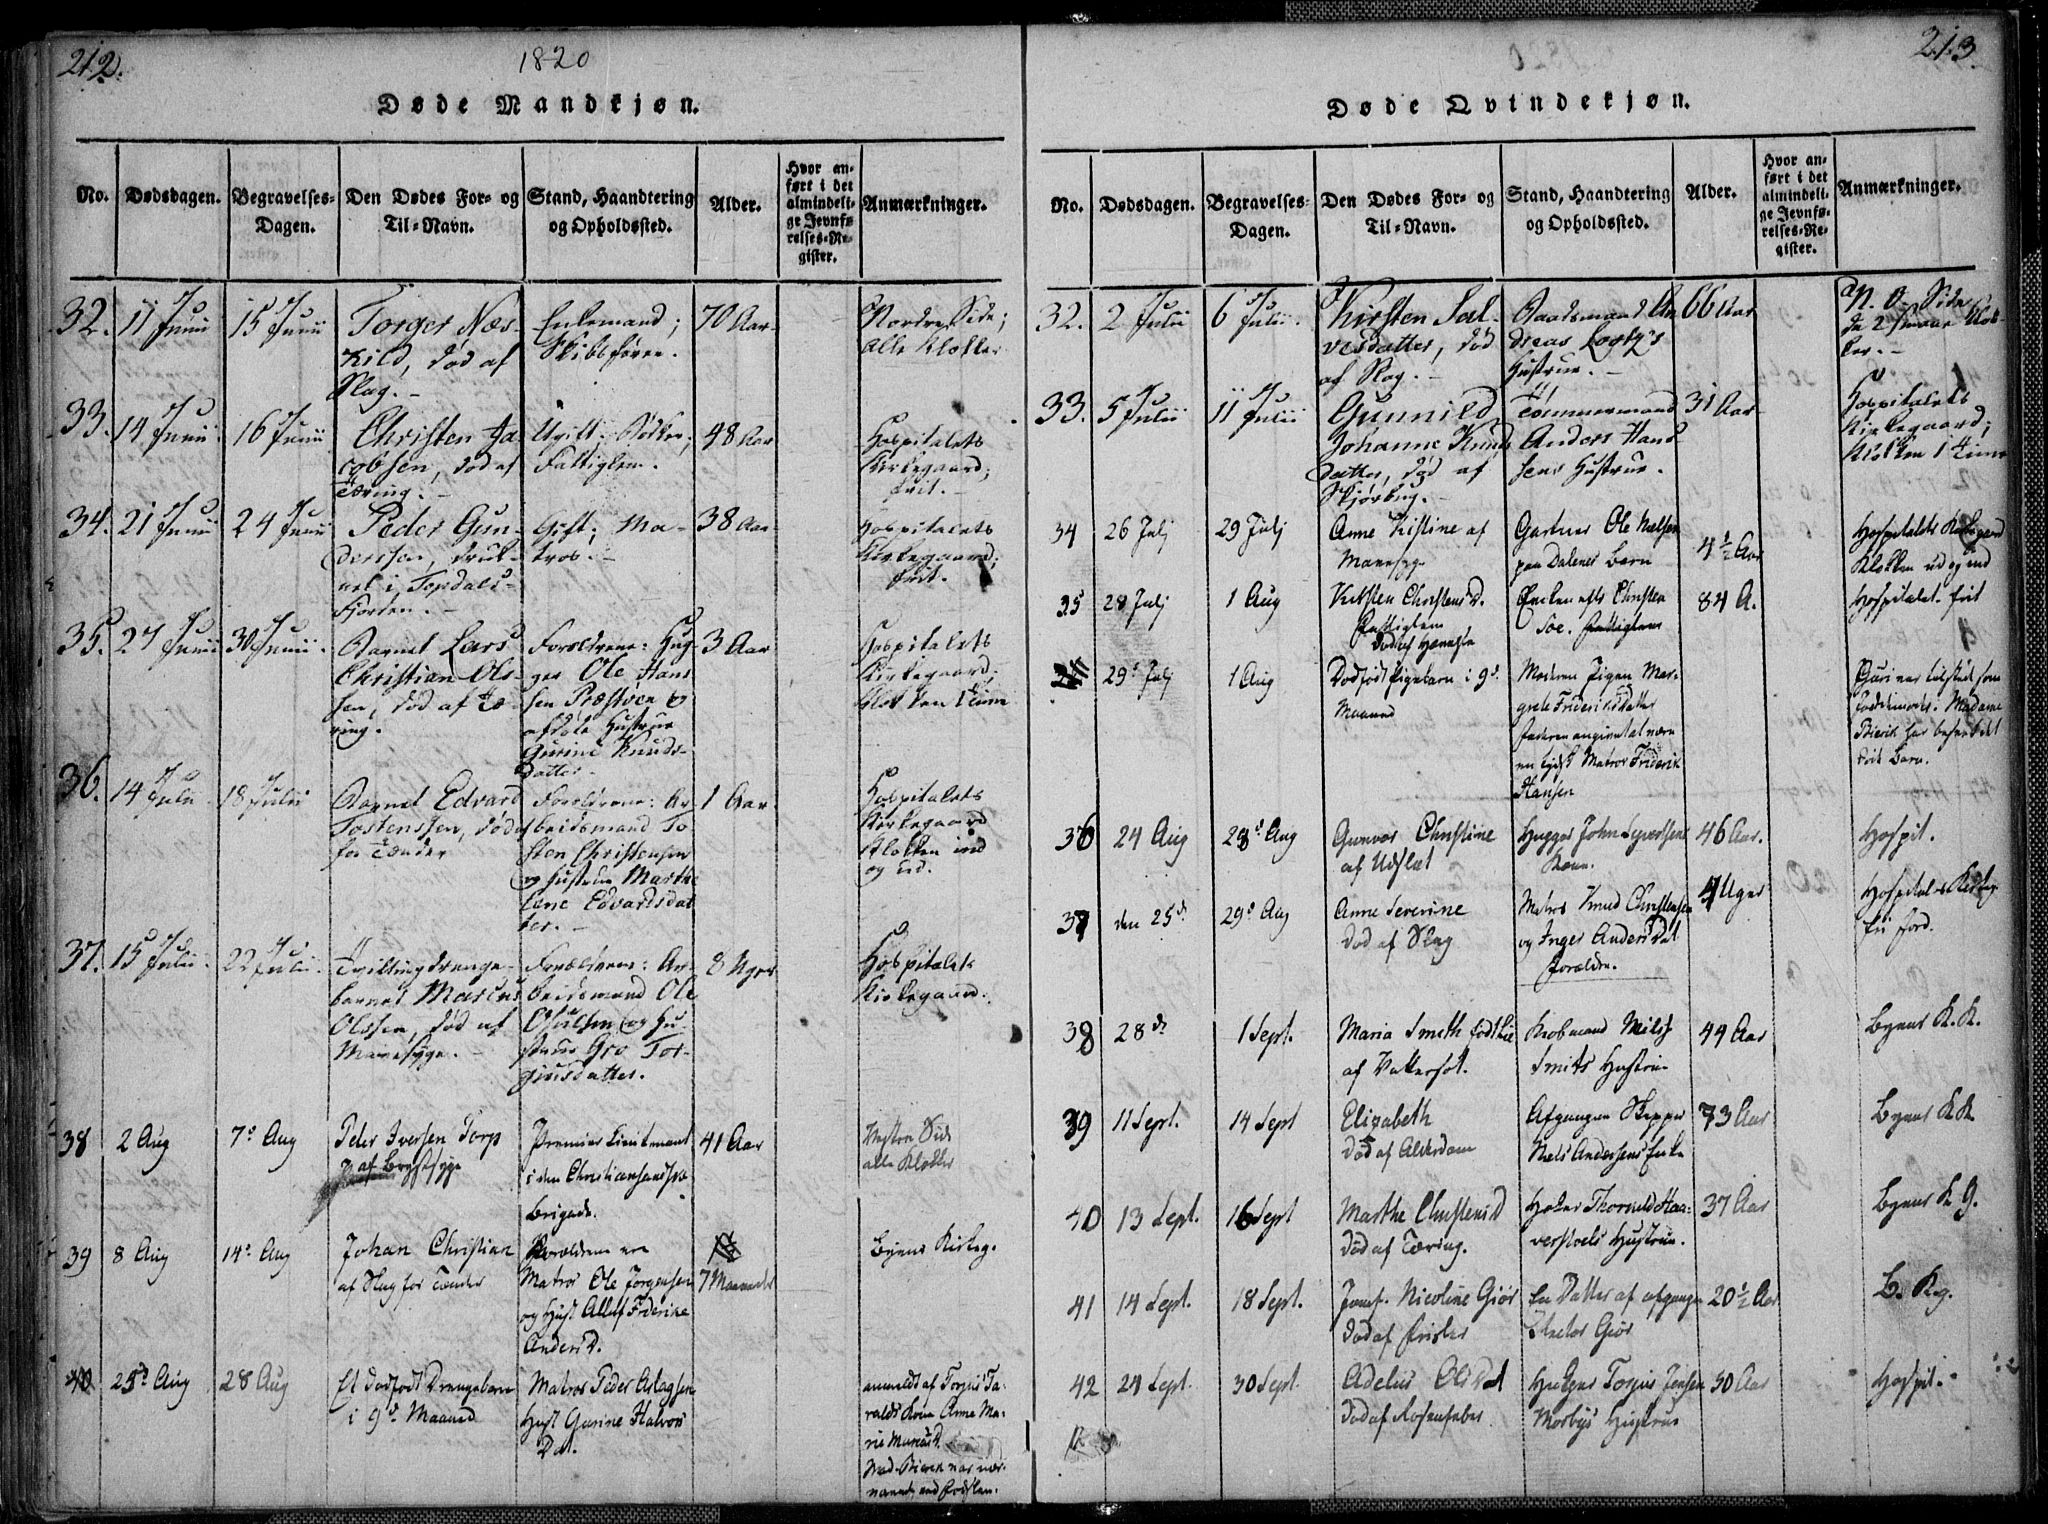 212.
1820
Døde Mandkjøn.
No.
Dødsdagen.
Begravelses-
Dagen.
Den Dødes For- og
Til-Navn.
Stand, Haandtering
og Opholdssted.
Alder.
Hvor an-
ført i det
almindeli-
ge Jevnfø-
relses-Re-
gister.
Anmærkninger.
32.
11 Junii
15 Junii
Torger Næs-
kild, død af
Slag.
Enkemand;
Skibsfører.
70 Aar
Nordre Side;
alle Klokker
33.
14 Junii
16 Junii
Christen Ja-
cobsen, død af
Tæring.
Ugift;
Fattiglem.
48 Aar
Hospitalets
Kirkegaard;
frit.
34.
21 Junii
24 Junii
Peder Gun-
derssen, druk-
net i Topdals-
Fjorden.
Gift; Ma-
tros.
38 Aar
Hospitalets
Kirkegaard;
frit.
35.
27 Junii
30 Junii.
Barnet Lars
Christian Ols-
sen, død af Tæ-
ring.
Forældrene: Hug-
ger Ole Han-
sen Præstøen og
afdøde Hustrue
Gurine Knuds-
datter
3 Aar
Hospitalets
Kirkegaard;
Klokken 1 Time
36.
14 Julii
18 Julii
Barnet Edvard
Tostenssen, død af
for Tænder
Forældrene: Ar-
beidsmand To-
sten Christensen
og Hustrue Marthe
Lene Edvardsdat-
ter.
1 Aar
Hospitalets
Kirkegaard
Klokken ind
og ud.
37.
15 Julii
22 Julii
Tvillingdrenge-
barnet Marcus
Olssen, død af
Mavesyge.
Forældrene: Ar-
beidsmand Ole
og Hu-
strue Gro Tor-
giusdatter.
8 Uger
Hospitalets
Kirkegaard.
38
2 Aug
7de Aug
Peder Iversen Torp
af Brystsyge
Premier Lieutenant
i den Christiansandske
Brigade.
41 Aar
Vestre Side
alle Klokker
39
8 Aug
14de Aug
Johan Christian
af Slag for Tænder
Forældrene ere
Matros Ole Jørgensen
og Hust
Anders D.
7 Maaneder
Byens Kirkeg.
40
25de Aug
28 Aug
Et dødfødt Drengebarn
i 9de Maaned
Matros Peder Aslagsen
Hust Gurine Halvors
Dat.
anmeldt af Torjus Ta-
ralds Kone Anne Ma-
rie
Mad. Bierk var nær-
værende ved Fødslen.
213.
Døde Qvindekjøn.
No.
Dødsdagen.
Begravelses-
Dagen.
Den Dødes For- og
Til-Navn.
Stand, Haandtering
og Opholdssted.
Alder.
Hvor an-
ført i det
almindeli-
ge Jevnfø-
relses-Re-
gister.
Anmærkninger.
32.
2 Julii
6 Julii.
Kirsten Sal-
vesdatter, død
af Slag.
Raadsmand An-
dreas
Hustrue.
66 Aar
N. O. Side
de 2 smaae Klok-
ker.
33.
5 Julii
11 Julii
Gunnild
Johanne Knuds
datter, død af
Skjørbug.
Tømmermand
Anders Hand-
sens Hustrue.
31 Aar
Hospitalets
Kirkegaard;
Klokken 1 Time
34
26 Julj
29 Julj
Anne Kistine af
Mavesyge
Gartner Ole Nelsen
paa Dalenes Barn
4½ Aar
Hospitalets Kirkegaard
Klokken ud og ind
35
28 Julj
1 Aug
Kirsten Christens D.
Fattiglem
Enken efter Christen
Fattiglem
84 A.
Hospitalet. frit
29de Julj
1 Aug
Dødfødt Pigebarn i 9de
Maaned
Moderen Pigen Mar-
grete Frideriks Datter
Faderen angivet at være
en tydsk Matros Friderik
Hansen
Guri var tilstæde som
Jordemoder. Madame
Bierk har beseet det
døde Barn.
36
24 Aug
28de Aug
Gunvor Christine
af Udslæt
Hugger John Syvertsens
Kone.
46 Aar.
Hospit.
37
den 25de
29de Aug
Anne Severine
død af Slag
Matros Knud Christensen
og Inger Anders Dat
Forældre.
4 Uger
Hospitalets Kirkeg.
fri Jord.
38
28de
1 Sept.
Maria Smith
af Vattersot.
Kiøbmand Nils
Smiths Hustrue
44 Aar
Byens K. K.
39
11 Sept.
14 Sept
Elizabeth
død af Alderdom
Afgangne Skipper
Niels Andersens Enke
73 Aar
Byens K K
40
13 Sept.
16 Sept
Marthe Christens D
død af Tæring.
Høker Thorvald Haa-
verstvels Hustrue.
37 Aar
Byens K G.
41
14 Sept.
18 Sept.
Jomf. Nicoline Giør
død af
En Datter af afgangne
Giør
20½ Aar
B. K g.
42
24 Sept.
30 Sept.
Adelus Ols Dat
død af Rosenfeber
Torjus Jensen
Mosbys Hustrue
50 Aar
Hospit.